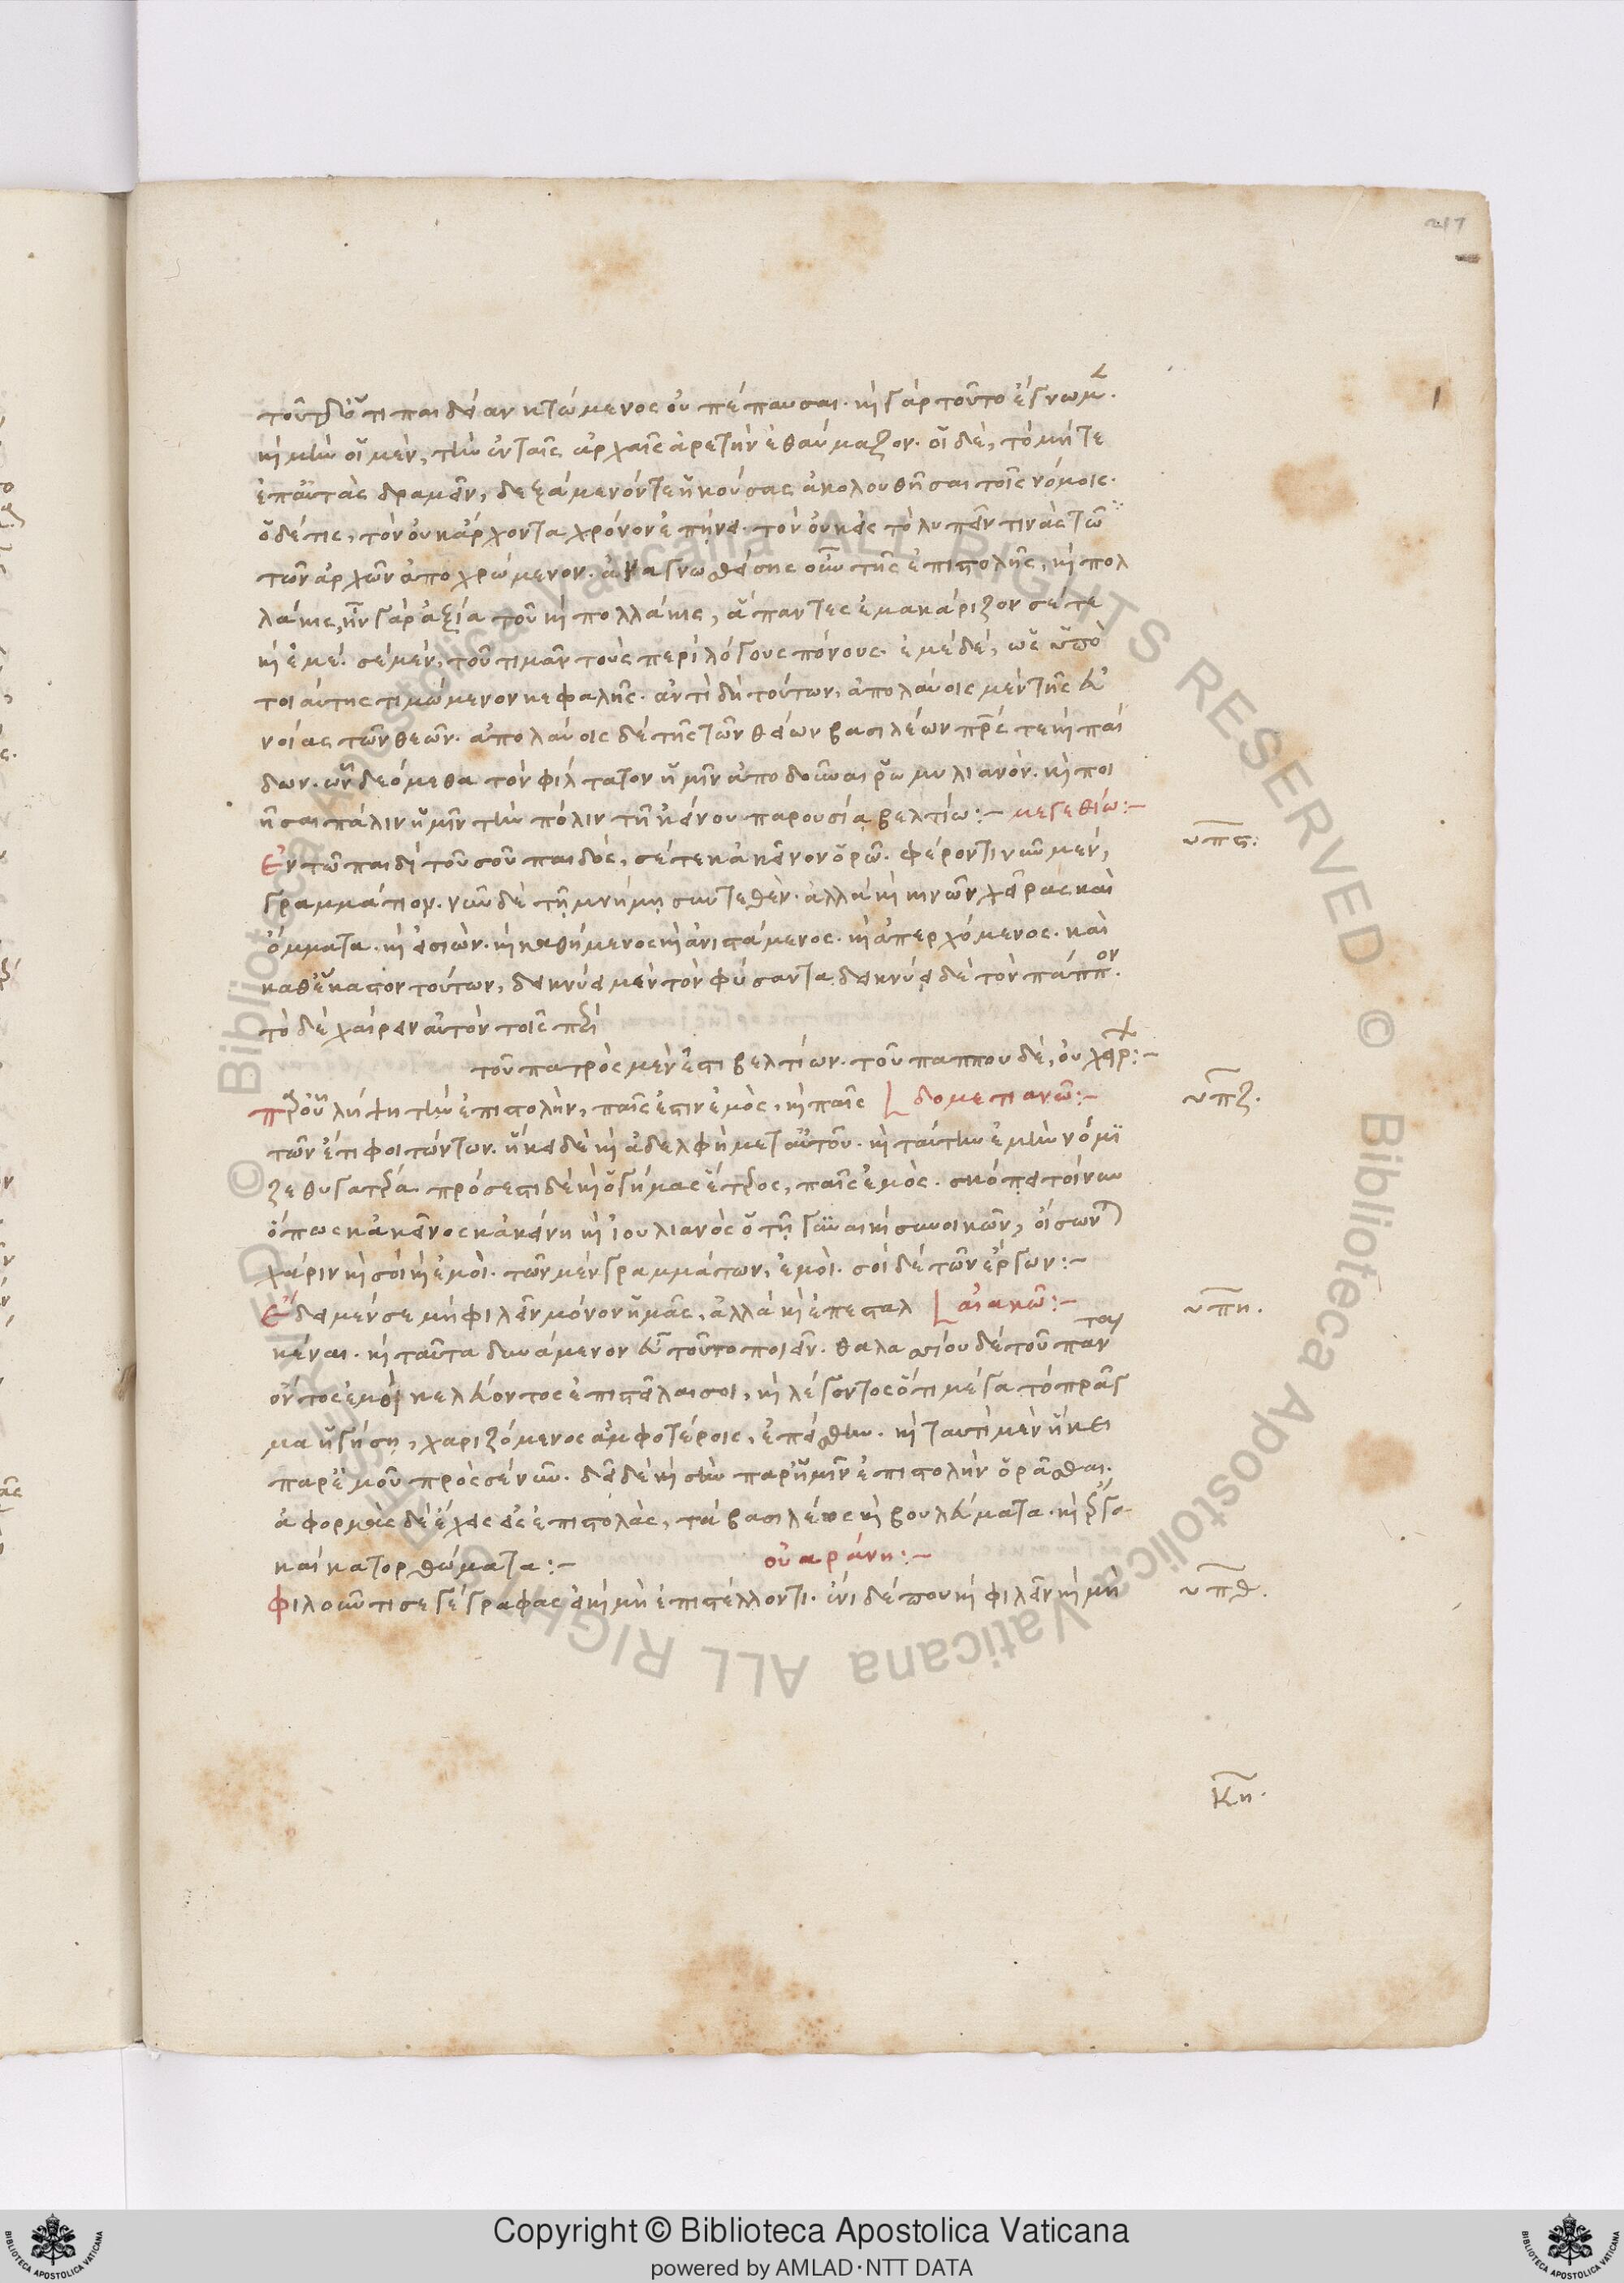 217
1
τοῦτο ὅτι παιδείαν κτώμενος οὐ πέπαυσαι. καὶ γὰρ τοῦτο ἔγνωμεν.
καὶ μὴν οἱ μὲν, τὴν ἐν ταῖς ἀρχαῖς ἀρετὴν ἐθαύμαζον. οἱ δὲ, τὸ μήτε
ἐπ' αὐτὰς δραμεῖν, δεξάμενόν τε ἡκούσας ἀκολουθῆσαι τοῖς νόμοις.
ὁ δέ τις, τὸν οὐκ ἄρχοντα χρόνον ἐπῄνει. τὸν οὐκ εἰς τὸ λυπεῖν τινὰς τῶ
τῶν ἀρχῶν ἀποχρώμενον. ἀναγνωσθείσης οὖν τῆς ἐπιστολῆς, καὶ πολ
λάκις, ἦν γὰρ ἀξία τοῦ καὶ πολλάκις, ἅπαντες ἐμακάριζον σέ τε
καὶ ἐμέ. σὲ μὲν, τοῦ τιμᾶν τοὺς περὶ λόγους πόνους. ἐμὲ δὲ, ὡς ὑπὸ
τοιαύτης τιμώμενον κεφαλῆς. ἀντὶ δὴ τούτων, ἀπολαύοις μὲν τῆς εὐ
νοίας τῶν θεῶν. ἀπολαύοις δὲ τῆς τῶν θείων βασιλέων πρός τε καὶ παί
δων. ὧν δεόμεθα τὸν φίλτατον ἡμῖν ἀποδοῦναι ῥωμυλιανόν. καὶ ποι
ῆσαι πάλιν ἡμῖν τὴν πόλιν τῇ ἐκείνου παρουσίᾳ βελτίω:– μεγεθίω:–
υπς:
Ἐν τῶ παιδὶ τοῦ σοῦ παιδός, σέ τε κἀκεῖνον ὁρῶ. φέροντι νῦν μὲν,
γραμμάτιον. νῦν δὲ τῇ μνήμῃ συντεθέν. ἀλλὰ καὶ κινῶν χεῖρας καὶ
ὄμματα. καὶ εἰσιών. καὶ καθήμενος καὶ ἀνιστάμενος. καὶ ἀπερχόμενος. καὶ
καθ' ἕκαστον τούτων, δεικνύει μὲν τὸν φύσαντα. δεικνύει δὲ τὸν πάππον.
τὸ δὲ χαίρειν αὐτὸν τοῖς περὶ
τοῦ πατρὸς μὲν ἐστι βελτίων. τοῦ παππου δὲ, οὐ χείρ:–
πρὸ οὗ λήψῃ τὴν ἐπιστολὴν, παῖς ἐστιν ἐμὸς, καὶ παῖς δομετιανῶ:–
υπζ.
τῶν ἔτι φοιτώντων. ἥκει δὲ καὶ ἀδελφὴ μετ' αὐτοῦ. καὶ ταύτην ἐμὴν νόμι
ζε θυγατέρα. πρόσεστι δὲ καὶ ὁ γήμας ἕτερος, παῖς ἐμός. σκόπει τοίνυν
ὅπως κἀκεῖνος κἀκείνη καὶ ἰουλιανὸς ὁ τῇ γυναικὶ συνοικῶν, οἴσων
χάριν καὶ σοὶ καὶ ἐμοί. τῶν μὲν γραμμάτων, ἐμοί. σοὶ δὲ τῶν ἔργων:–
Ἔδει μὲν σε μὴ φιλεῖν μόνον ἡμᾶς, ἀλλὰ καὶ ἐπεσταλ αἰακῶ:–
υπη.
κέναι. καὶ ταῦτα δυνάμενον εὖ τοῦτο ποιεῖν. θαλασσίου δὲ τοῦ πάν
οντος ἐμοὶ κελεύοντος ἐπιστεῖλαί σοι, καὶ λέγοντος ὅτι μέγα τὸ πρᾶγ
μα ἡγήσῃ, χαριζόμενος ἀμφοτέροις, ἐπείσθην. καὶ ταυτὶ μὲν ἥκει
παρ' ἐμοῦ πρὸς σὲ νῦν. δεῖ δὲ καὶ σὴν παρ' ἡμῖν ἐπιστολὴν ὁρᾶσθαι.
ἀφορμὰς δὲ ἔχεις εἰς ἐπιστολὰς, τὰ βασιλέως καὶ βουλεύματα. καὶ ἔργα
καὶ κατορθώματα:– οὐαράνη:–
Φιλοῦντί σε γέγραφας εἰ καὶ μὴ ἐπιστέλλοντι. ἔνι δέ που καὶ φιλεῖν καὶ μὴ
υπθ.
κη.
Copyright © Biblioteca Apostolica Vaticana
powered by AMLAD·NTT DATA